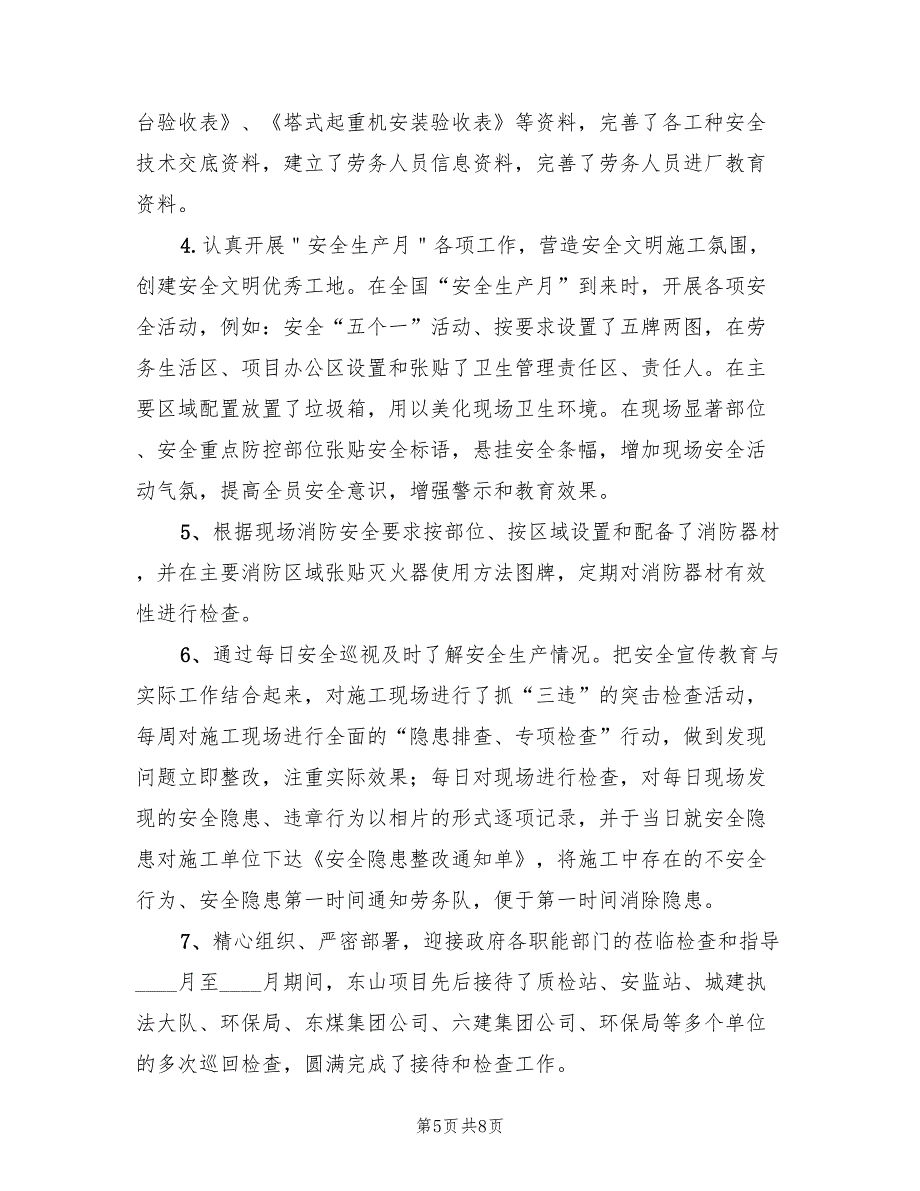 台验收表》、《塔式起重机安装验收表》等资料，完善了各工种安全
技术交底资料，建立了劳务人员信息资料，完善了劳务人员进厂教育
资料。
4.认真开展＂安全生产月＂各项工作，营造安全文明施工氛围，
创建安全文明优秀工地。在全国“安全生产月”到来时，开展各项安
全活动，例如：安全“五个一”活动、按要求设置了五牌两图，在劳
务生活区、项目办公区设置和张贴了卫生管理责任区、责任人。在主
要区域配置放置了垃圾箱，用以美化现场卫生环境。在现场显著部位
、安全重点防控部位张贴安全标语，悬挂安全条幅，增加现场安全活
动气氛，提高全员安全意识，增强警示和教育效果。
5、根据现场消防安全要求按部位、按区域设置和配备了消防器材
，并在主要消防区域张贴灭火器使用方法图牌，定期对消防器材有效
性进行检查。
6、通过每日安全巡视及时了解安全生产情况。把安全宣传教育与
实际工作结合起来，对施工现场进行了抓“三违”的突击检查活动，
每周对施工现场进行全面的“隐患排查、专项检查”行动，做到发现
问题立即整改，注重实际效果；每日对现场进行检查，对每日现场发
现的安全隐患、违章行为以相片的形式逐项记录，并于当日就安全隐
患对施工单位下达《安全隐患整改通知单》，将施工中存在的不安全
行为、安全隐患第一时间通知劳务队，便于第一时间消除隐患。
7、精心组织、严密部署，迎接政府各职能部门的莅临检查和指导
____月至____月期间，东山项目先后接待了质检站、安监站、城建执
法大队、环保局、东煤集团公司、六建集团公司、环保局等多个单位
的多次巡回检查，圆满完成了接待和检查工作。
第5页 共8页